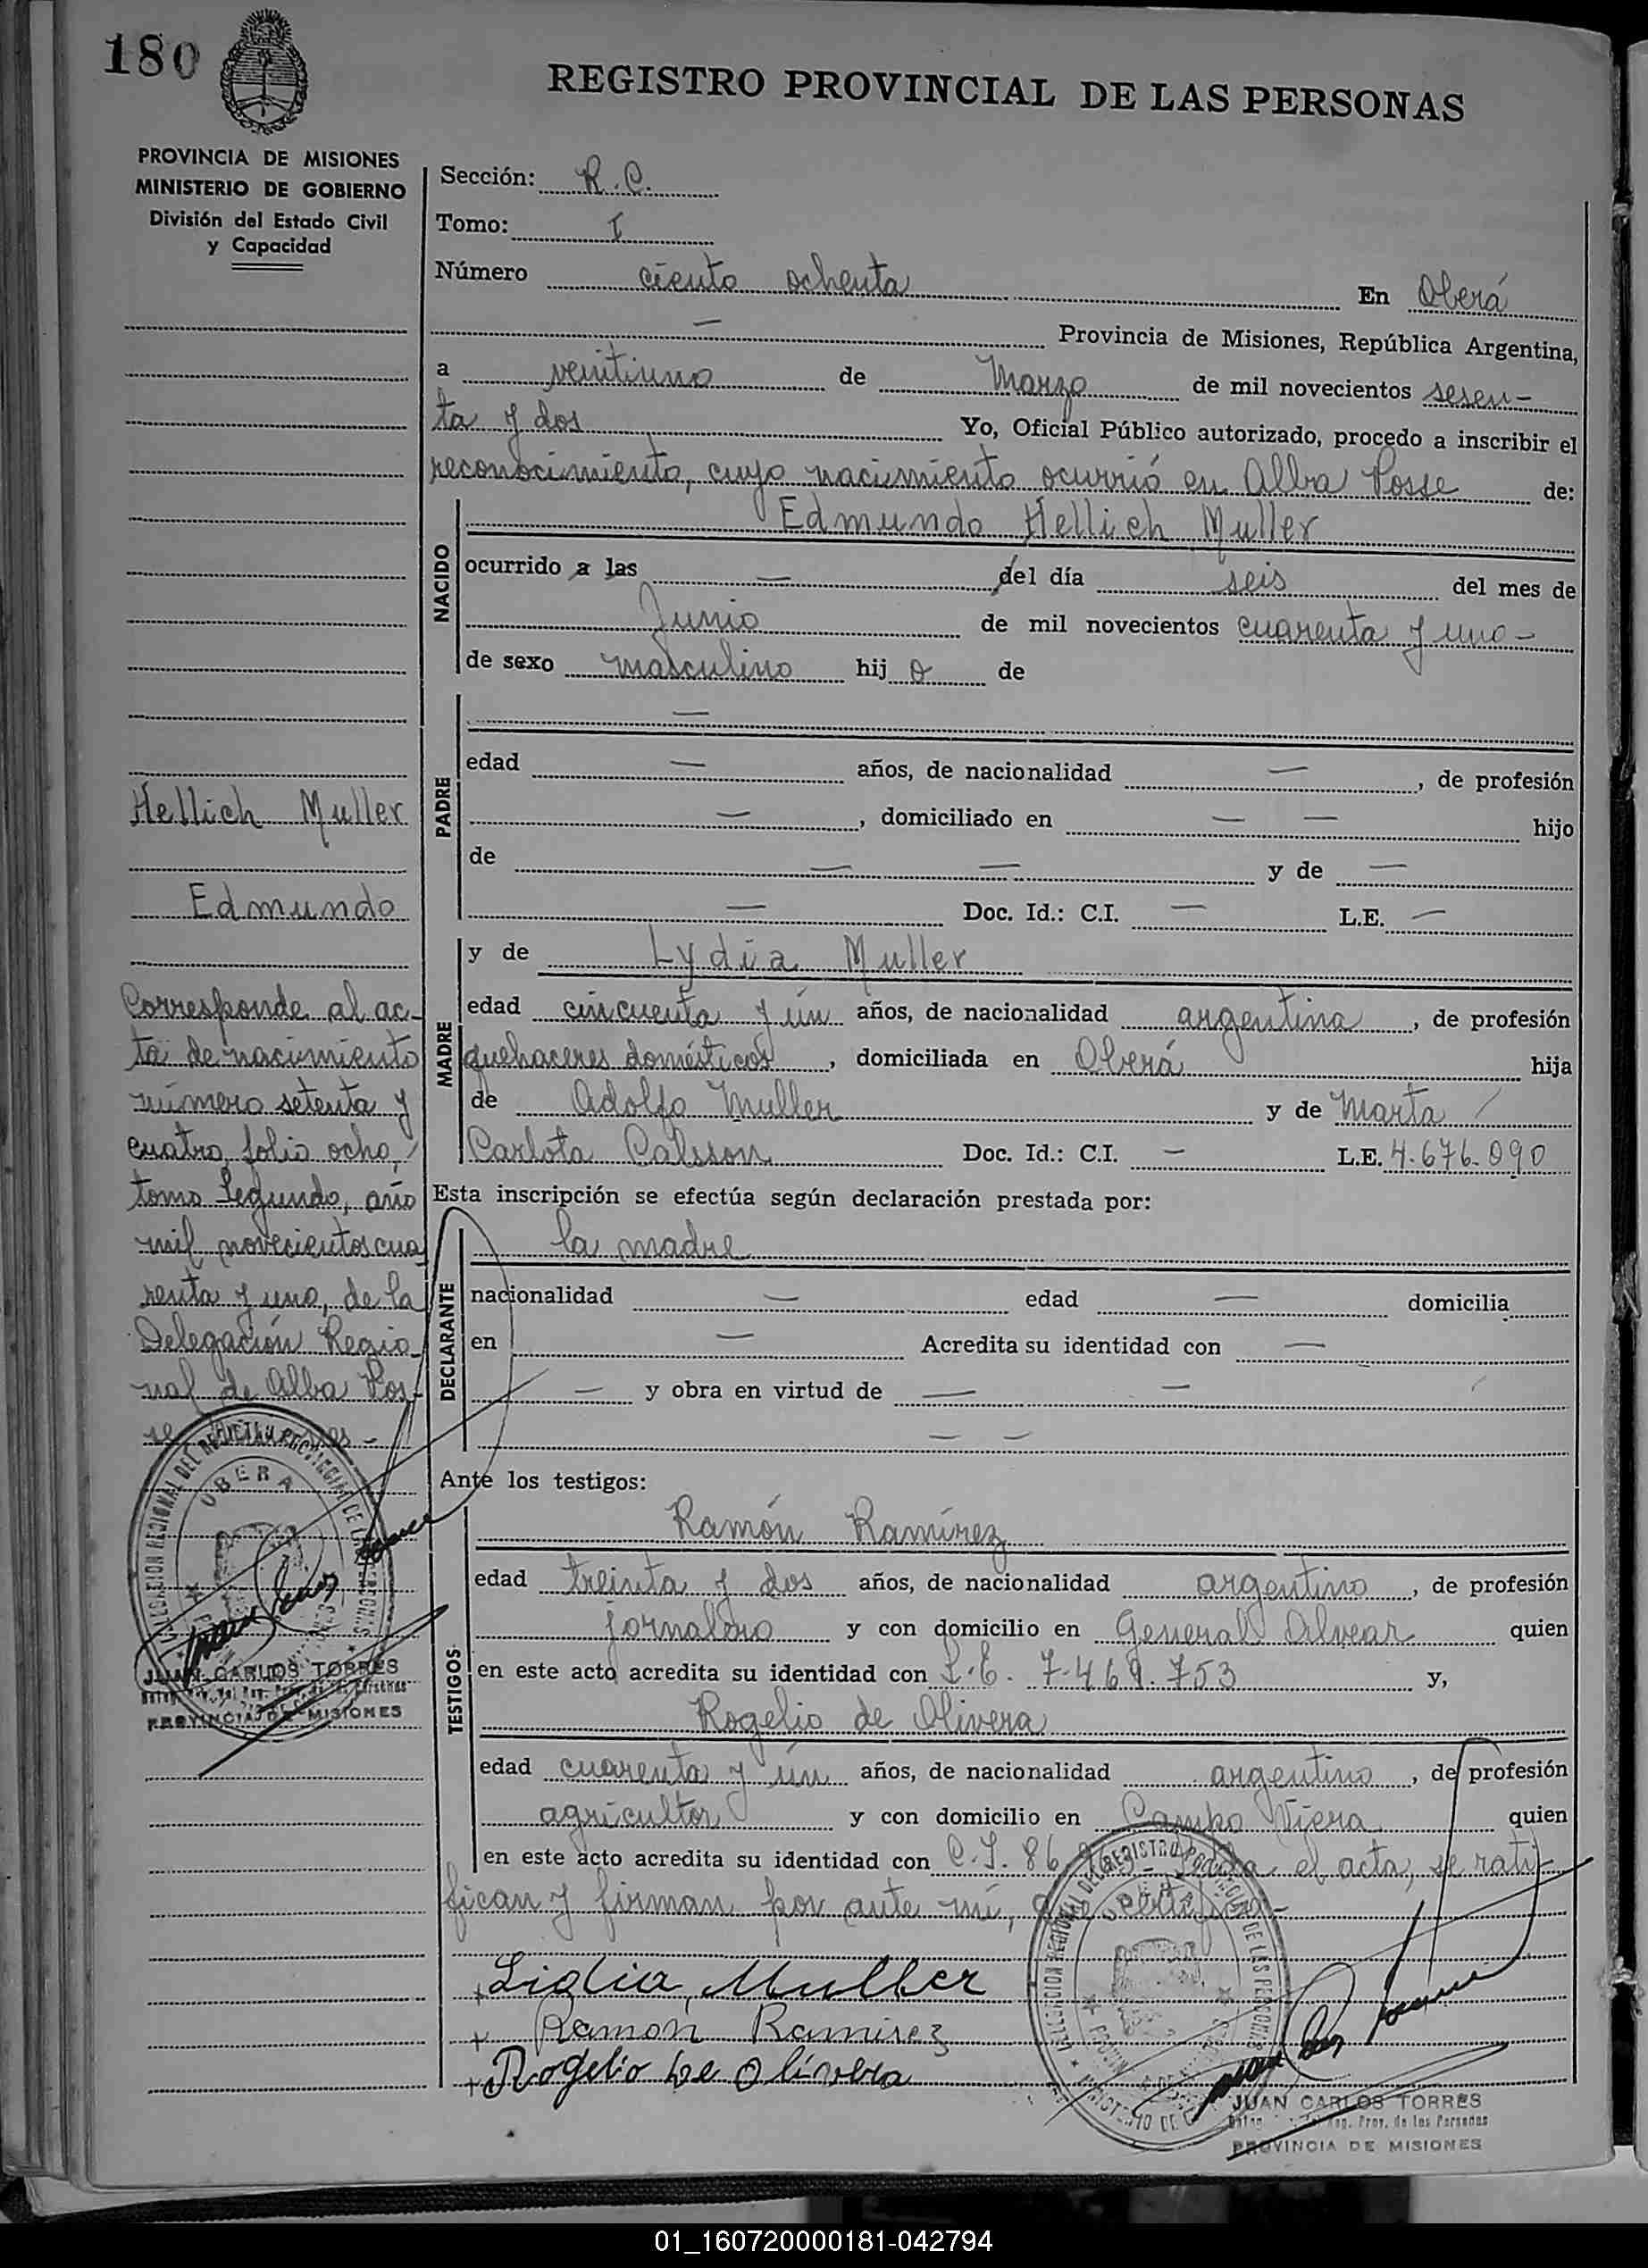 180
REGISTRO PROVINCIAL DE LAS PERSONAS
PROVINCIA DE MISIONES
MINISTERIO DE GOBIERNO
División del Estado Civil
y Capacidad
Sección: R.C.
Tomo: I
Número ciento ochenta En Oberá
— Provincia de Misiones, República Argentina,
a veintiuno de Marzo de mil novecientos sesen-
ta y dos Yo, Oficial Público autorizado, procedo a inscribir el
reconocimiento, cuyo nacimiento ocurrió en Alba Posse de:
NACIDO
Edmundo Hellich Muller
ocurrido a las — del día seis del mes de
Junio de mil novecientos cuarenta y uno-
de sexo masculino hij o de
PADRE
—
edad — años, de nacionalidad —, de profesión
—, domiciliado en — — hijo
de — — y de —
— Doc. Id.: C.I. — L.E. —
MADRE
y de Lydia Muller
edad cincuenta y ún años, de nacionalidad argentina, de profesión
quehaceres domésticos, domiciliada en Oberá hija
de Adolfo Muller y de Marta /
Carlota Calsson Doc. Id.: C.I. — L.E. 4.676.090
Esta inscripción se efectúa según declaración prestada por:
DECLARANTE
la madre
nacionalidad — edad — domicilia
en — Acredita su identidad con —
— y obra en virtud de — —
— —
Ante los testigos:
TESTIGOS
Ramón Ramírez
edad treinta y dos años, de nacionalidad argentino, de profesión
jornalero y con domicilio en General Alvear quien
en este acto acredita su identidad con L.E. 7.469.753 y,
Rogelio de Olivera
edad cuarenta y ún años, de nacionalidad argentino, de profesión
agricultor y con domicilio en Campo Viera quien
en este acto acredita su identidad con C.I. 86 el acta, se rati-
fican y firman por ante mí,
Lidia Muller
+ Ramon Ramirez
+ Rogelio De Olivera
JUAN CARLOS TORRES
Prov. de las Personas
PROVINCIA DE MISIONES
Hellich Muller
Edmundo
Corresponde al ac-
ta de nacimiento
número setenta y
cuatro, folio ocho, /
tomo Segundo, año
mil novecientos cua
renta y uno, de la
Delegación Regio-
nal de Alba Pos-
se
OBERA
JUAN CARLOS TORRES
PROVINCIA DE MISIONES
01_160720000181-042794